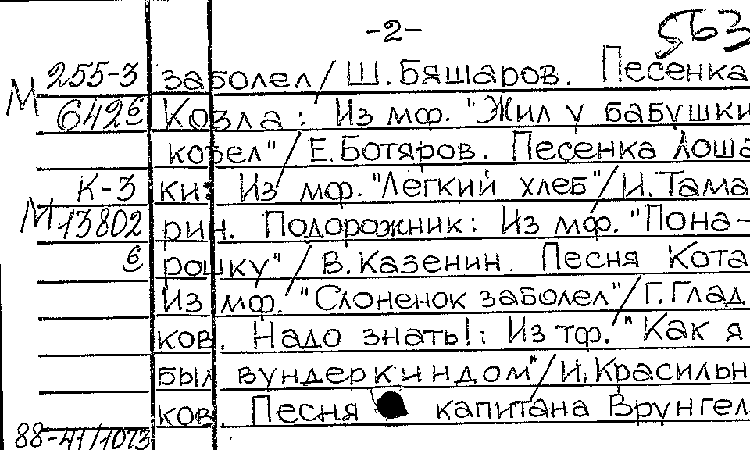 -2-
563
255-3 заболел/ Ш. Бяшаров. Песенка
М 6426 Козла: Из мф. "Жил у бабушки
козел"/ Е. Ботяров. Песенка Лоша
К-3 ки: Из мф. "Легкий хлеб"/ И. Тама
М 13802 рин. Подорожник: Из мф. "Пона-
6 рошку"/ В. Казенин. Песня Кота
Из мф. "Слоненок заболел"/ Г. Глад
ков. Надо знать!: Из тф. "Как я
был вундеркиндом"/ И. Красильн
ков. Песня капитана Врунгел
88-41/1073